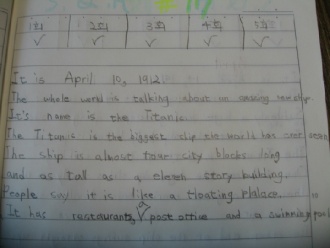 1회 2회 3회 4회 5회
It is April 10, 1912
The whole world is talking about
It's name is the Titanic
The Titanic is the biggest ship the world has ever seen
The ship is almost four city blocks long
and as tall as a eleven story building.
People say it is like a floating
It has restaurants, a post office and a swimming pool